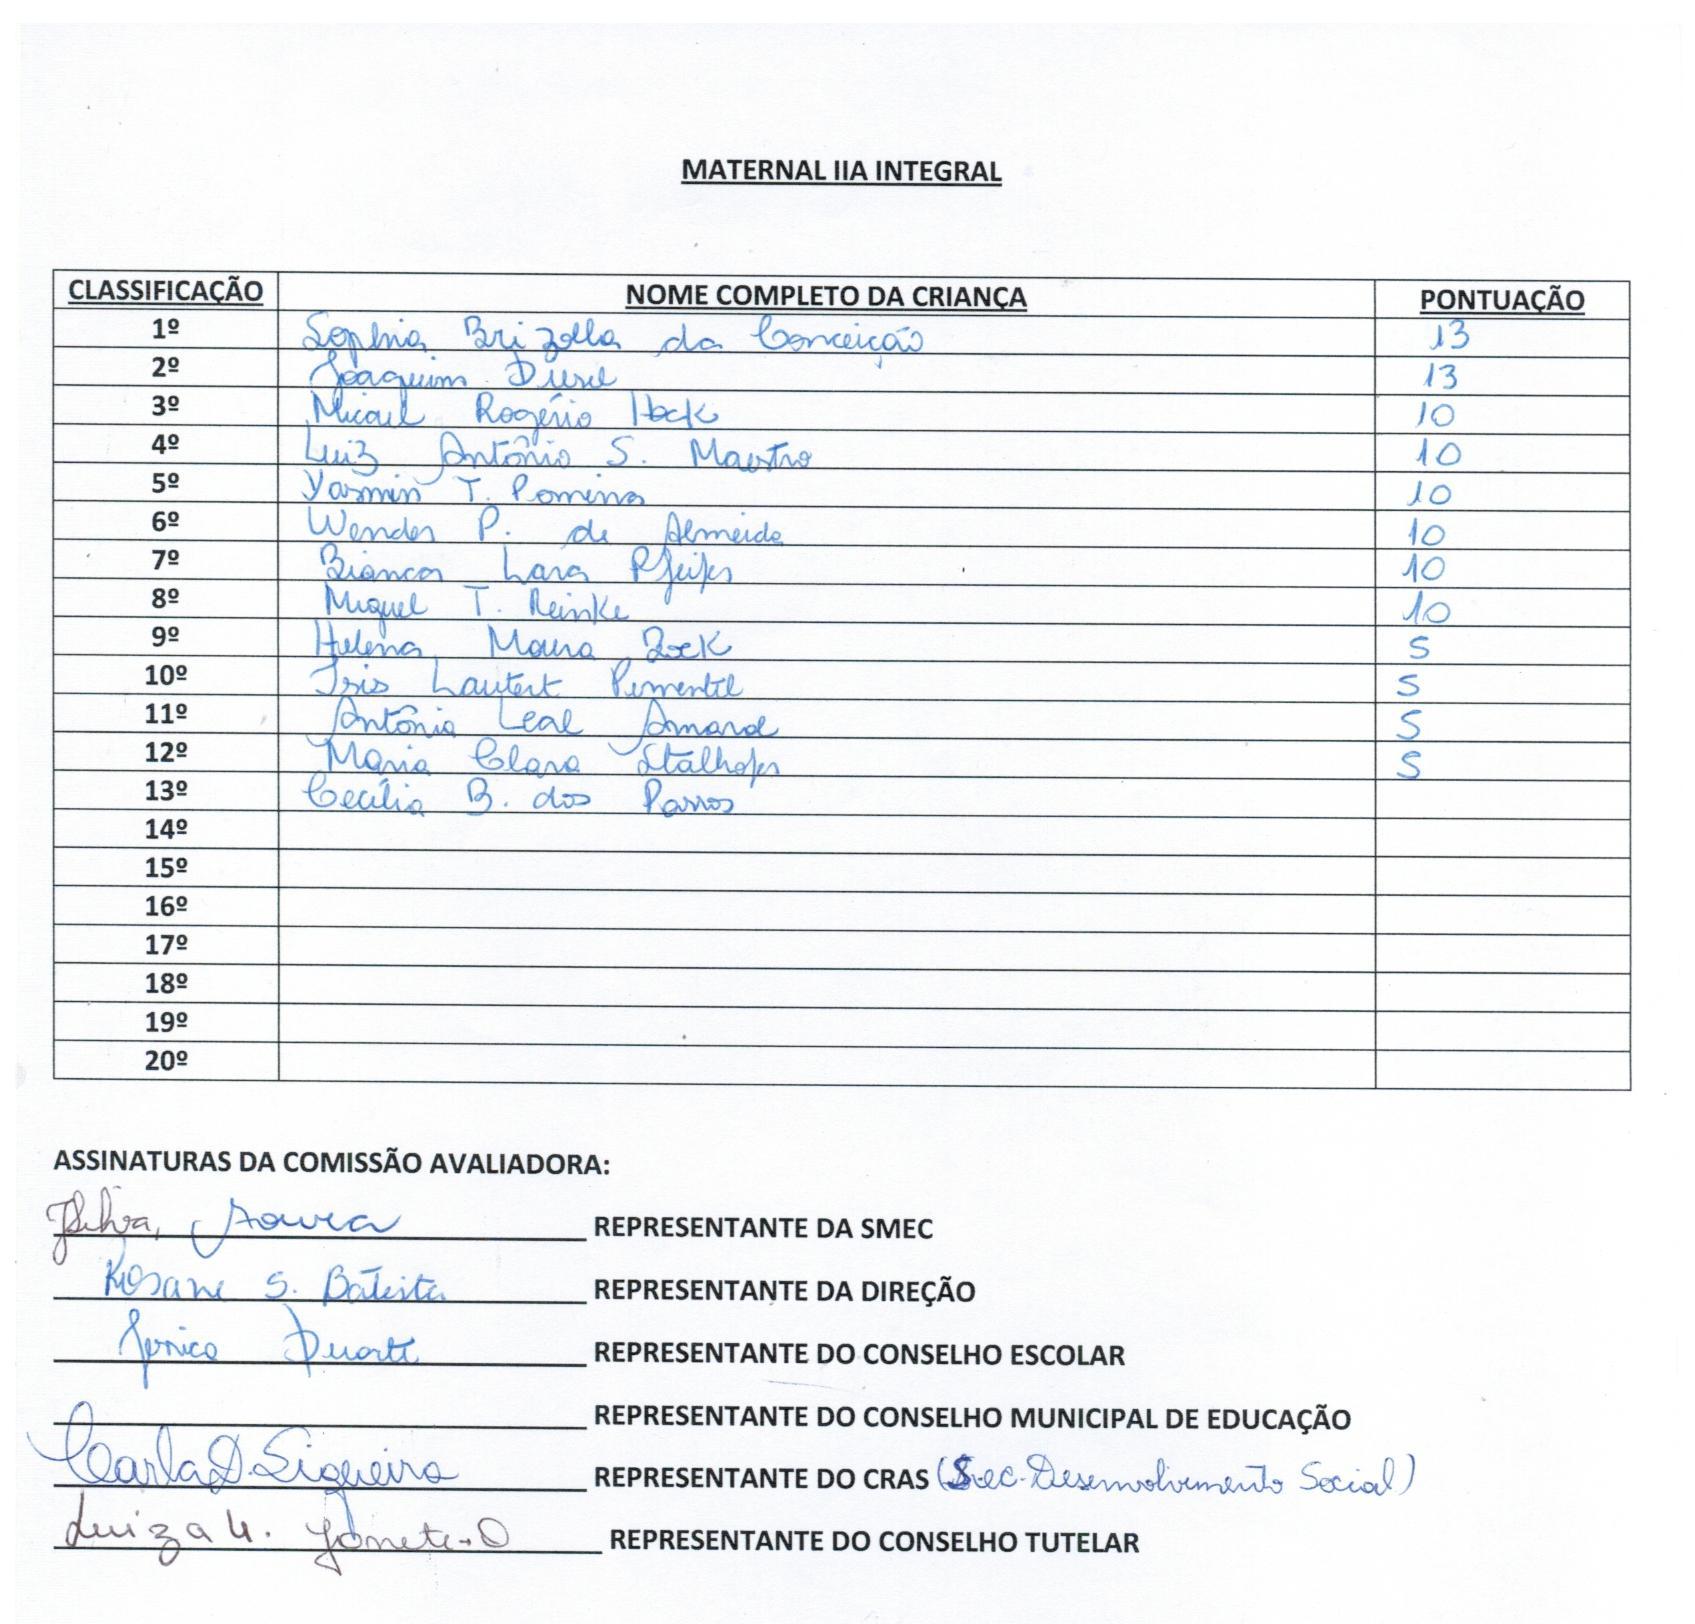 MATERNAL IIA INTEGRAL
CLASSIFICAÇÃO NOME COMPLETO DA CRIANÇA PONTUAÇÃO
1º Sophia Brizolla da Conceição 13
2º Joaquim Diesel 13
3º Micael Rogério Hock 10
4º Luiz Antônio S. Maestro 10
5º Yasmin T. 10
6º P. de Almeida 10
7º Bianca Lara Pfeifer 10
8º Miguel T. Reinke 10
9º Helena Moura 5
10º Isis Lautert Pimentel 5
11º Antônia Leal Amaral 5
12º Maria Clara Stalhofer 5
13º Cecília B. dos Passos
14º
15º
16º
17º
18º
19º
20º
ASSINATURAS DA COMISSÃO AVALIADORA:
REPRESENTANTE DA SMEC
Rosane S. Batista REPRESENTANTE DA DIREÇÃO
Duarte REPRESENTANTE DO CONSELHO ESCOLAR
REPRESENTANTE DO CONSELHO MUNICIPAL DE EDUCAÇÃO
Carla D. Siqueira REPRESENTANTE DO CRAS (Sec. Desenvolvimento Social)
Luiza REPRESENTANTE DO CONSELHO TUTELAR